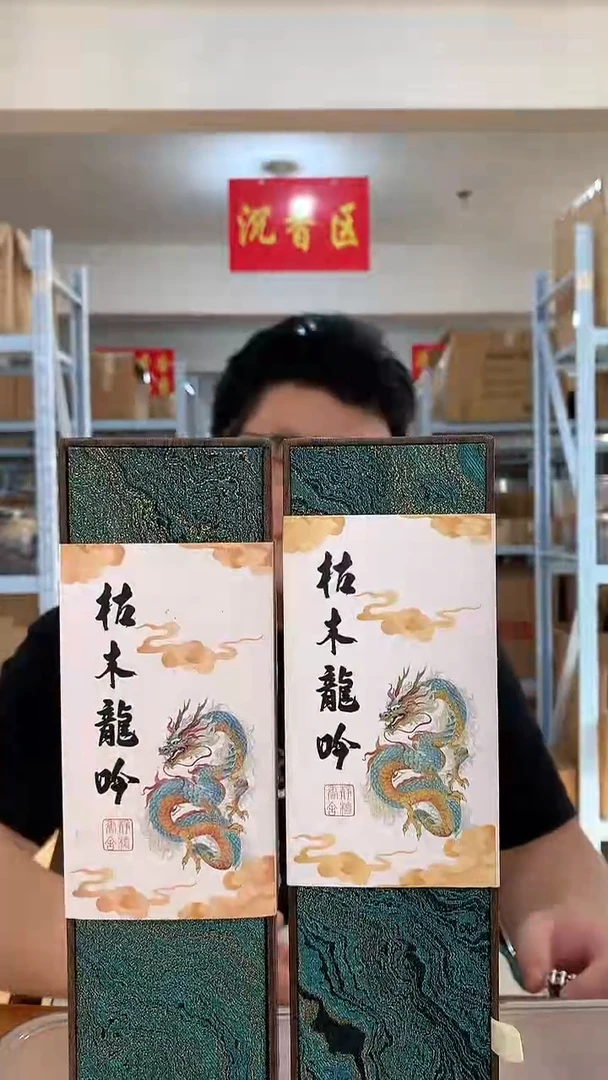 沉香区
枯木龍吟
枯木龍吟